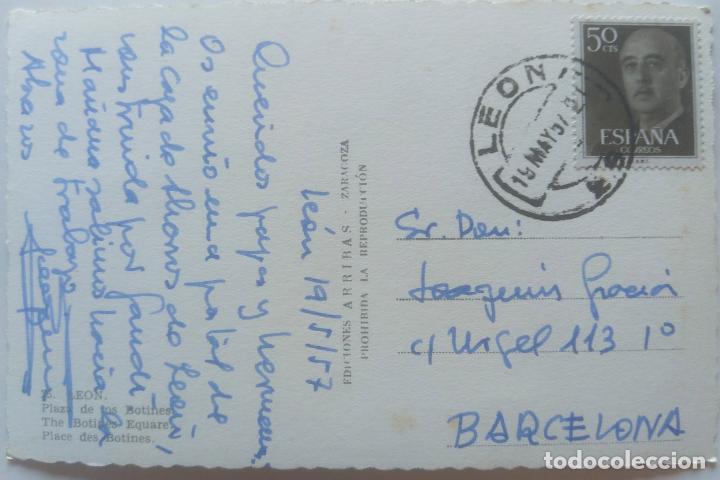 León 19/5/57
Queridos papas y hermanos.
Os envio una postal de
la casa de Ahorros de León,
construida por Gaudí
Mañana salimos hacia la
zona de trabajo
Abrazos
25. LEON.
Plaza de los Botines.
The Botines Equare.
Place des Botines.
EDICIONES ARRIBAS - ZARAGOZA
PROHIBIDA LA REPRODUCCIÓN
LEON
19 MAY 57
50 CTS
ESPAÑA
CORREOS
Sr. Don:
Joaquin Gracia
c/ Urgel 113 1º
BARCELONA
todocoleccion.net